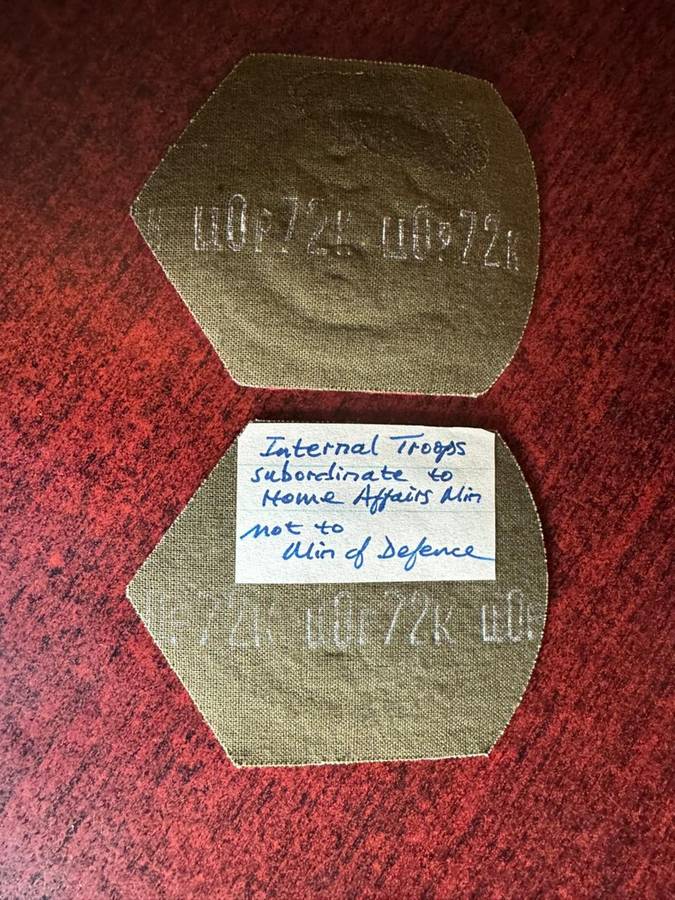 ц0р72к ц0р72к
Internal Troops
subordinate to
Home Affairs Min
not to
Min of Defence
р72к ц0р72к ц0р